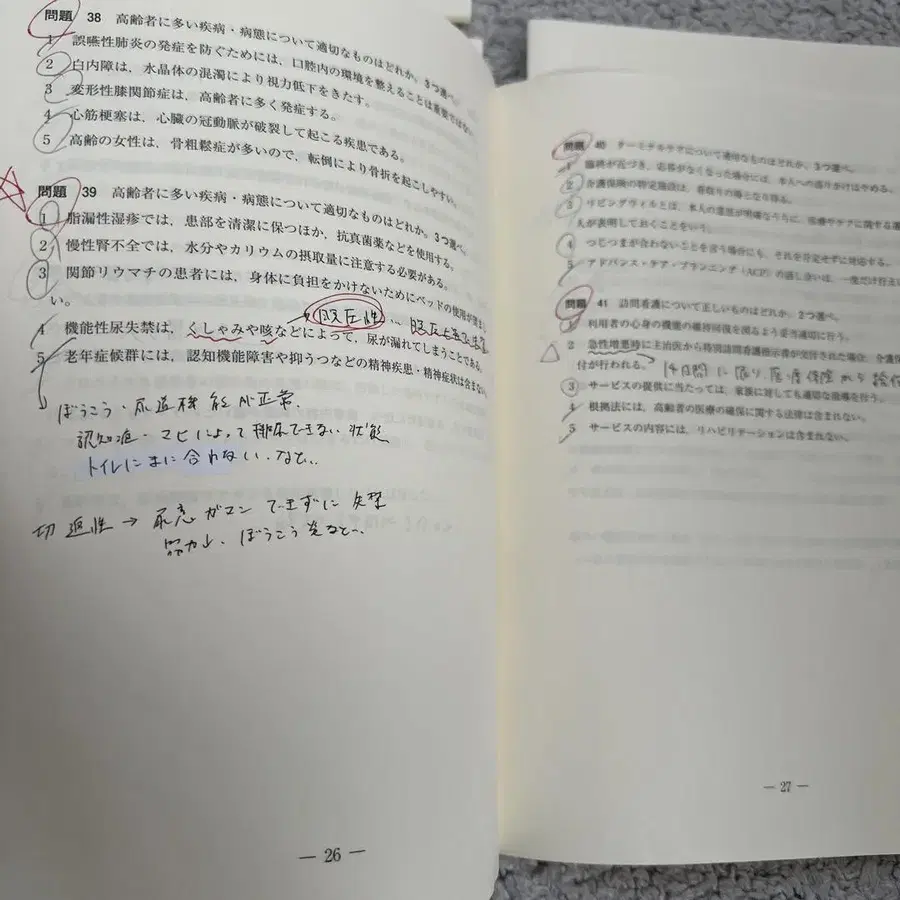 問題 38 高齢者に多い疾病・病態について適切なものはどれか。3つ選べ。
1 誤嚥性肺炎の発症を防ぐためには、口腔内の環境を整えることは重要ではない。
2 白内障は、水晶体の混濁により視力低下をきたす。
3 変形性膝関節症は、高齢者に多く発症する。
4 心筋梗塞は、心臓の冠動脈が破裂して起こる疾患である。
5 高齢の女性は、骨粗鬆症が多いので、転倒により骨折を起こしやすい。
問題 39 高齢者に多い疾病・病態について適切なものはどれか。3つ選べ。
1 脂漏性湿疹では、患部を清潔に保つほか、抗真菌薬などを使用する。
2 慢性腎不全では、水分やカリウムの摂取量に注意する必要がある。
3 関節リウマチの患者には、身体に負担をかけないためにベッドの使用が
い。
腹圧性… 腹圧
4 機能性尿失禁は、くしゃみや咳などによって、尿が漏れてしまうことである。
5 老年症候群には、認知機能障害や抑うつなどの精神疾患・精神症状は含まない。
ぼうこう・尿道機能が正常、
認知症・マヒによって排尿できない状態
トイレにまに合わない、など…
切迫性 → 尿意ガマンできずに失禁
筋力↓、ぼうこう炎など…
— 26 —
問題 40 ターミナルケアについて適切なものはどれか。3つ選べ。
1 臨終が近づき、応答がなくなった場合には、本人への語りかけはやめる。
2 介護保険の特定施設は、看取りの場となり得る。
3 リビングウィルとは、本人の意思が明確なうちに、医療やケアに関する
人が表明しておくことをいう。
4 つじつまが合わないことを言う場合にも、それを否定せずに対応する。
5 アドバンス・ケア・プランニング(ACP)の話し合いは、一度だけ行え
問題 41 訪問看護について正しいものはどれか。2つ選べ。
1 利用者の心身の機能の維持回復を図るよう妥当適切に行う。
2 急性増悪時に主治医から特別訪問看護指示書が交付された場合、介護保
付が行われる。 14日間に限り、医療保険から給付
3 サービスの提供に当たっては、家族に対しても適切な指導を行う。
4 根拠法には、高齢者の医療の確保に関する法律は含まれない。
5 サービスの内容には、リハビリテーションは含まれない。
— 27 —